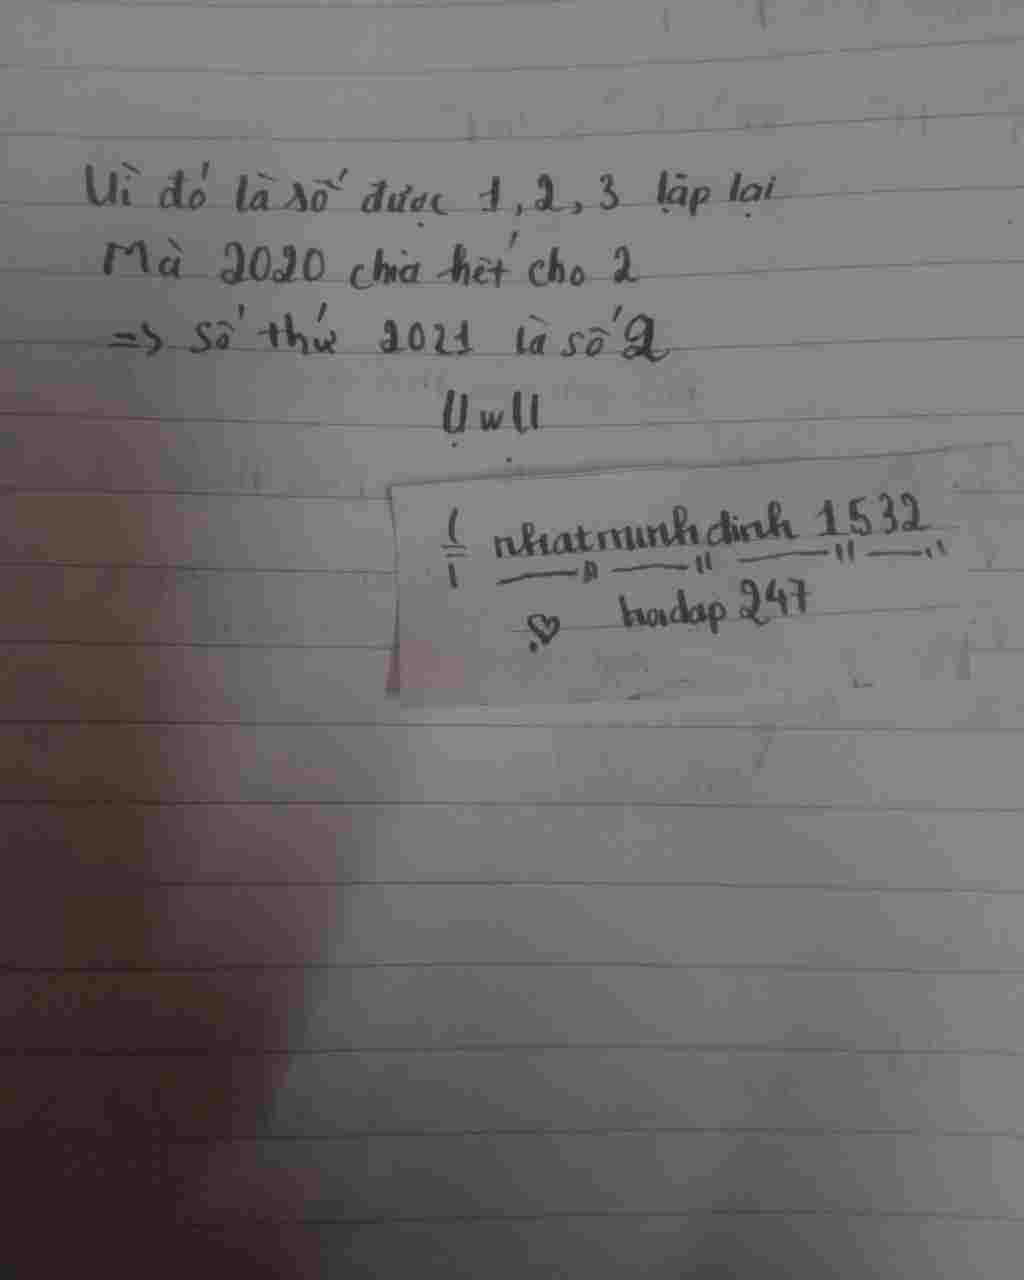 Vì đó là số được 1, 2, 3 lặp lại
Mà 2020 chia hết cho 2
=> số thứ 2021 là số 2
UwU
nhatminhdinh 1532
hoidap 247